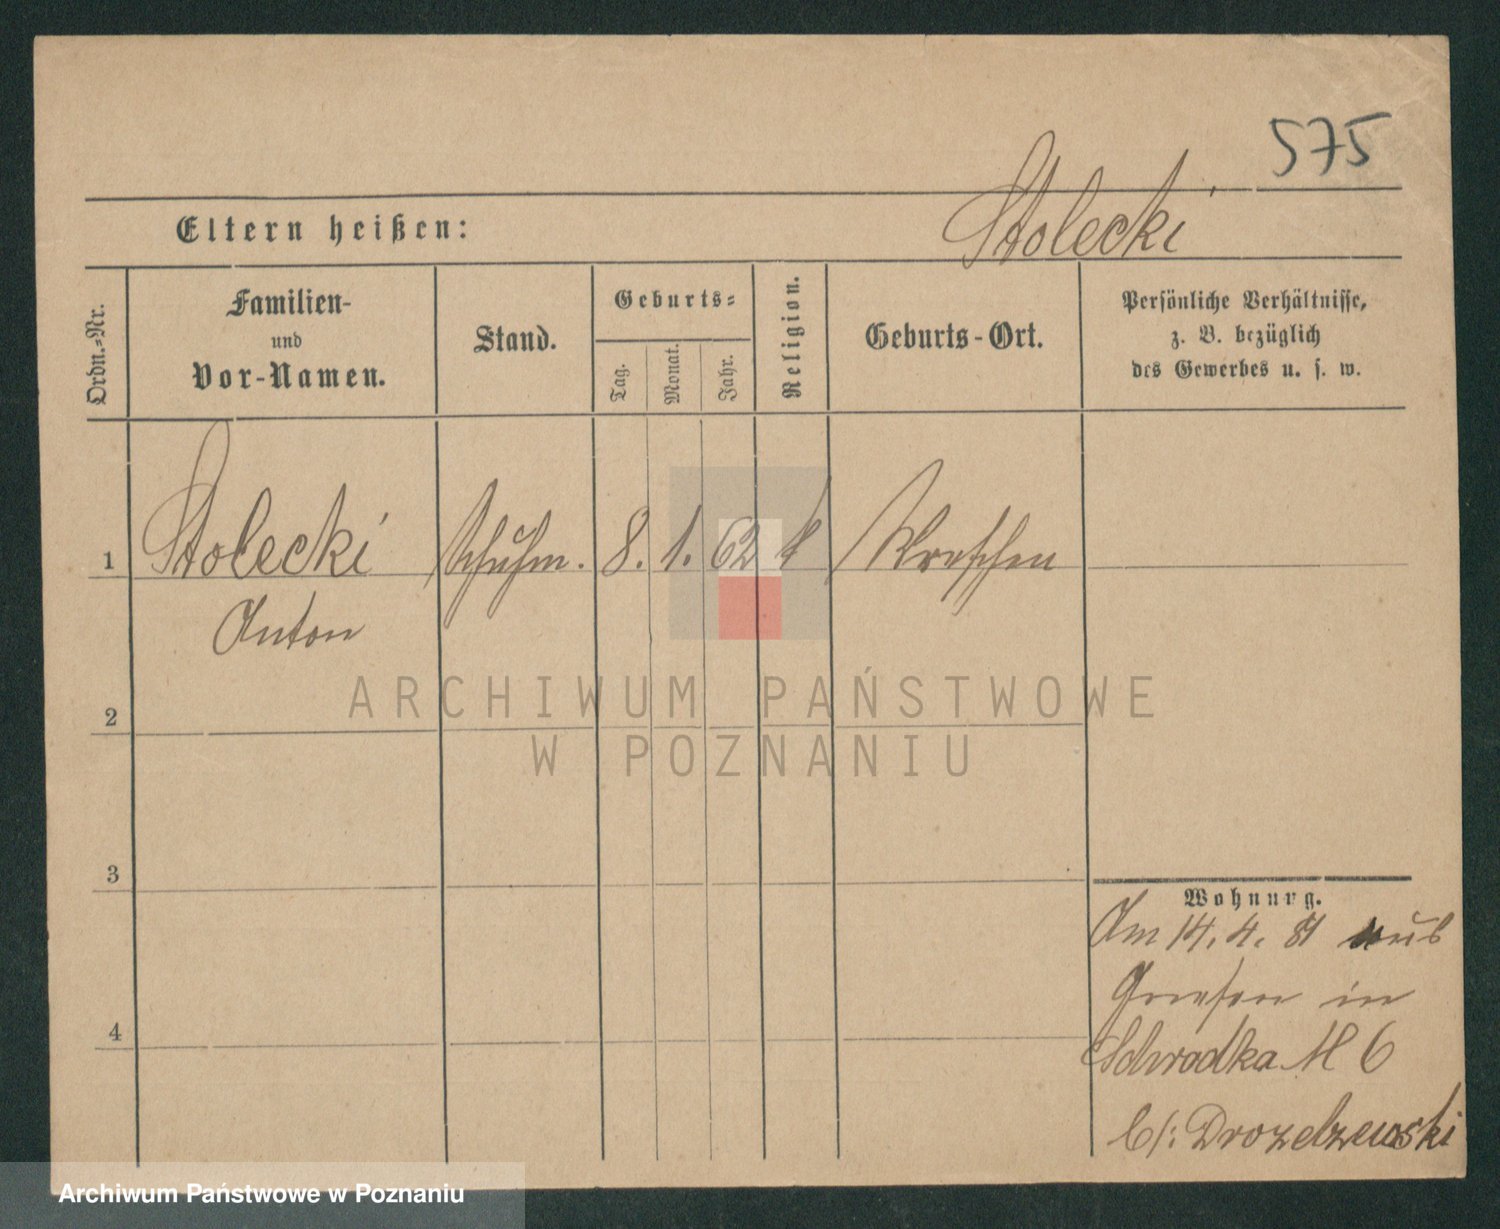 575
Stolecki
Eltern heißen:
Ordn.-Nr.
Familien-
und
Vor-Namen.
Stand.
Geburts-
Tag.
Monat.
Jahr.
Religion.
Geburts-Ort.
Persönliche Verhältnisse,
z. B. bezüglich
des Gewerbes u. s. w.
1
Stolecki
Anton
Schuhm.
8.
1.
62
k
Wreschen
2
3
4
ARCHIWUM PAŃSTWOWE
W POZNANIU
Wohnung.
Am 14. 4. 81 aus
Gnesen in
Schrodka N 6
b/: Drozdzewski
Archiwum Państwowe w Poznaniu